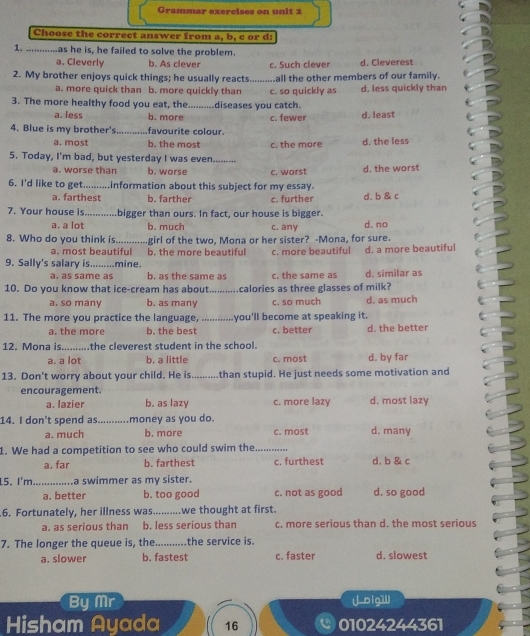 Grammar exercises on unit 2
Choose the correct answer from a, b, c or d:
1. ............as he is, he failed to solve the problem.
a. Cleverly b. As clever c. Such clever d. Cleverest
2. My brother enjoys quick things; he usually reacts..........all the other members of our family.
a. more quick than b. more quickly than c. so quickly as d. less quickly than
3. The more healthy food you eat, the..........diseases you catch.
a. less b. more c. fewer d. least
4. Blue is my brother's............favourite colour.
a. most b. the most c. the more d. the less
5. Today, I'm bad, but yesterday I was even.........
a. worse than b. worse c. worst d. the worst
6. I'd like to get..........information about this subject for my essay.
a. farthest b. farther c. further d. b & c
7. Your house is............bigger than ours. In fact, our house is bigger.
a. a lot b. much c. any d. no
8. Who do you think is............girl of the two, Mona or her sister? -Mona, for sure.
a. most beautiful b. the more beautiful c. more beautiful d. a more beautiful
9. Sally's salary is.........mine.
a. as same as b. as the same as c. the same as d. similar as
10. Do you know that ice-cream has about...........calories as three glasses of milk?
a. so many b. as many c. so much d. as much
11. The more you practice the language, ............you'll become at speaking it.
a. the more b. the best c. better d. the better
12. Mona is..........the cleverest student in the school.
a. a lot b. a little c. most d. by far
13. Don't worry about your child. He is..........than stupid. He just needs some motivation and
encouragement.
a. lazier b. as lazy c. more lazy d. most lazy
14. I don't spend as...........money as you do.
a. much b. more c. most d. many
1. We had a competition to see who could swim the............
a. far b. farthest c. furthest d. b & c
15. I'm...............a swimmer as my sister.
a. better b. too good c. not as good d. so good
6. Fortunately, her illness was..........we thought at first.
a. as serious than b. less serious than c. more serious than d. the most serious
7. The longer the queue is, the...........the service is.
a. slower b. fastest c. faster d. slowest
By Mr
Hisham Ayada
16
للتواصل
01024244361